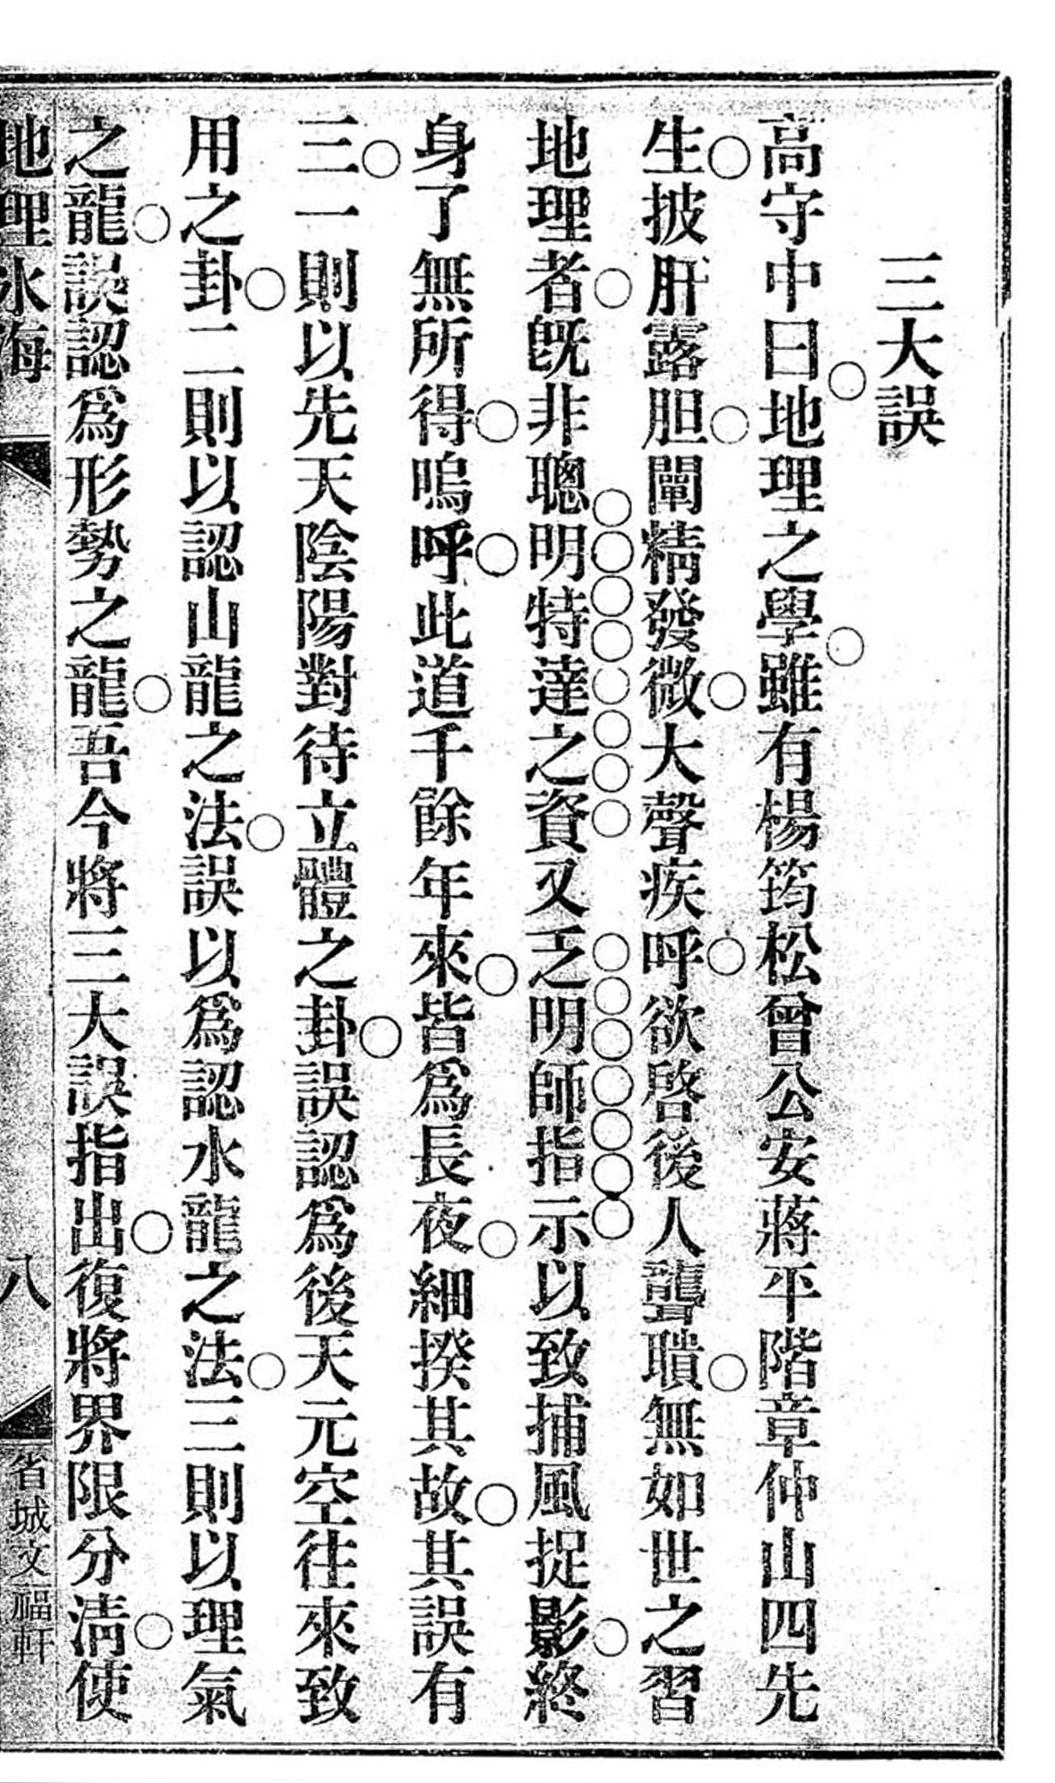 三大誤
高守中曰地理之學雖有楊筠松曾公安蔣平階章仲山四先
生披肝露胆闡精發微大聲疾呼欲啓後人聾聵無如世之習
地理者既非聰明特達之資又乏明師指示以致捕風捉影終
身了無所得嗚呼此道千餘年來皆爲長夜細揆其故其誤有
三一則以先天陰陽對待立體之卦誤認爲後天元空往來致
用之卦二則以認山龍之法誤以爲認水龍之法三則以理氣
之龍誤認爲形勢之龍吾今將三大誤指出復將界限分淸使
地理冰海 八 省城文福軒